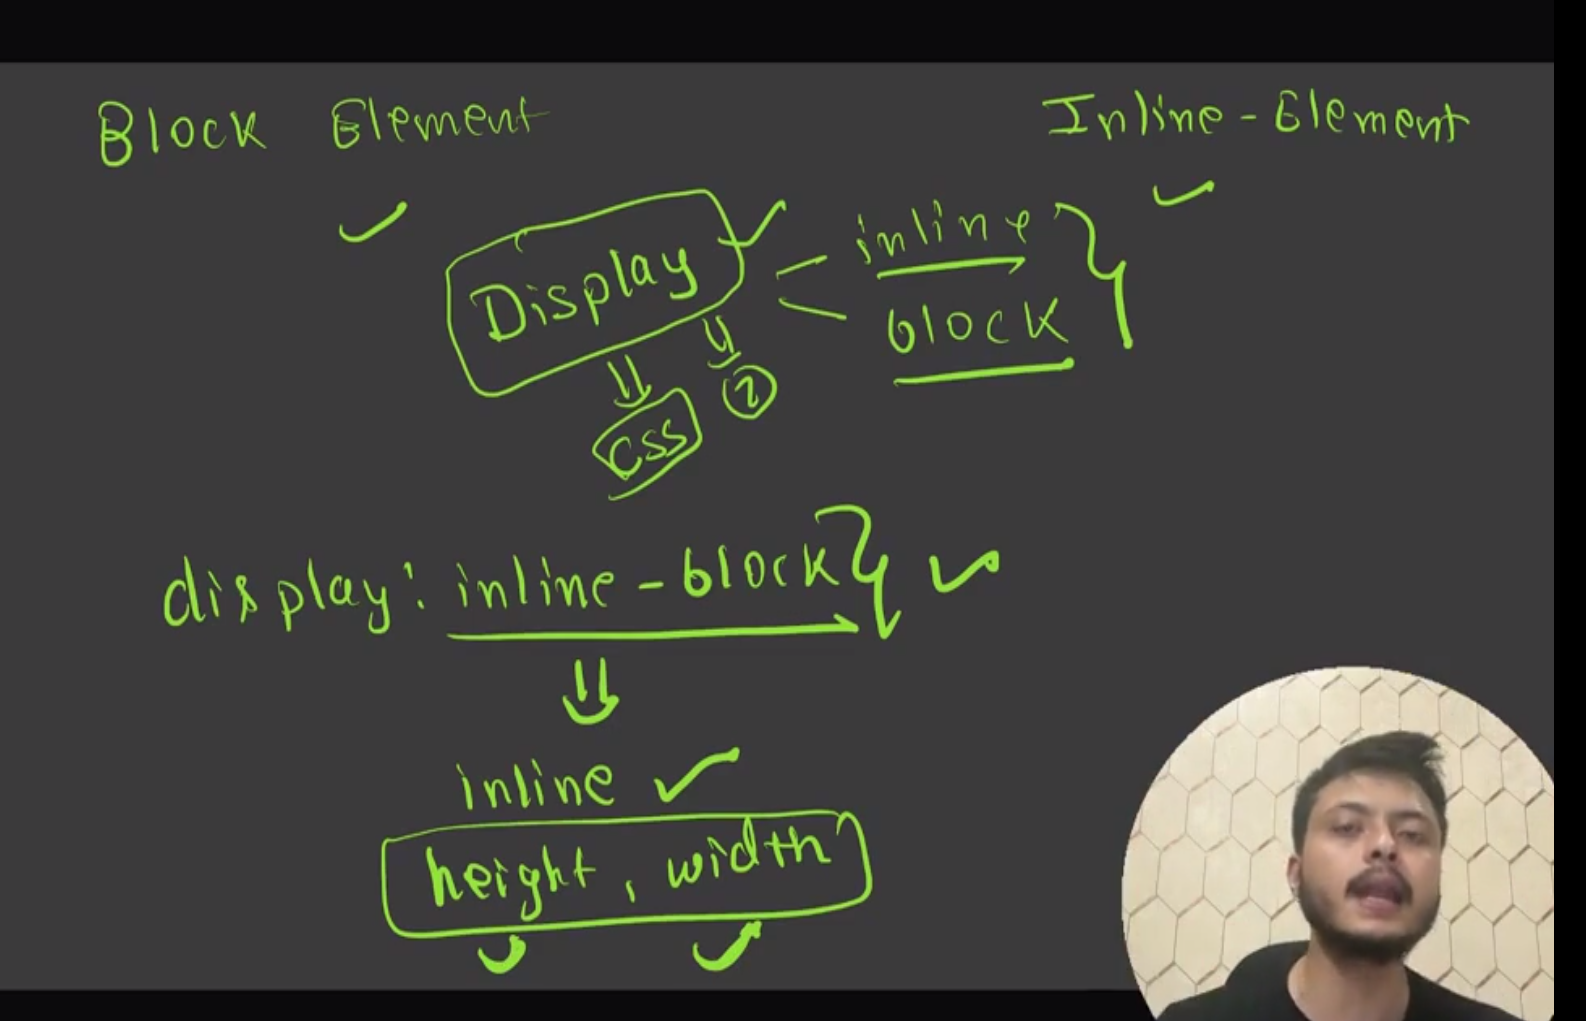 Block Element
Inline-Element
Display
inline
block
2
css
display: inline-block
inline
height, width